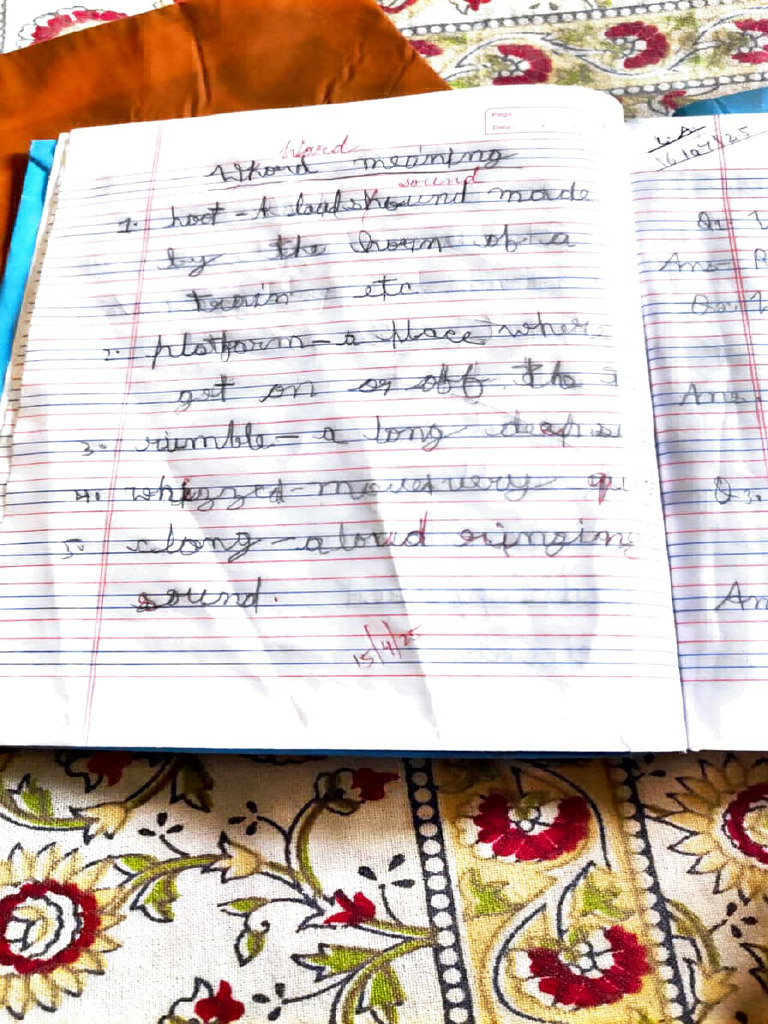 Page
Date
Word
Whord meaning
sound
1. hoot - A loud shound made
by the horn of a
train etc
2. platform - a place wher
get on or off the
3. rumble - a long deep
4. whizzed - moved very qu
5. clang - a loud ringing
sound.
15/4/25
16/04/25
Ans
Ans
Q3.
An